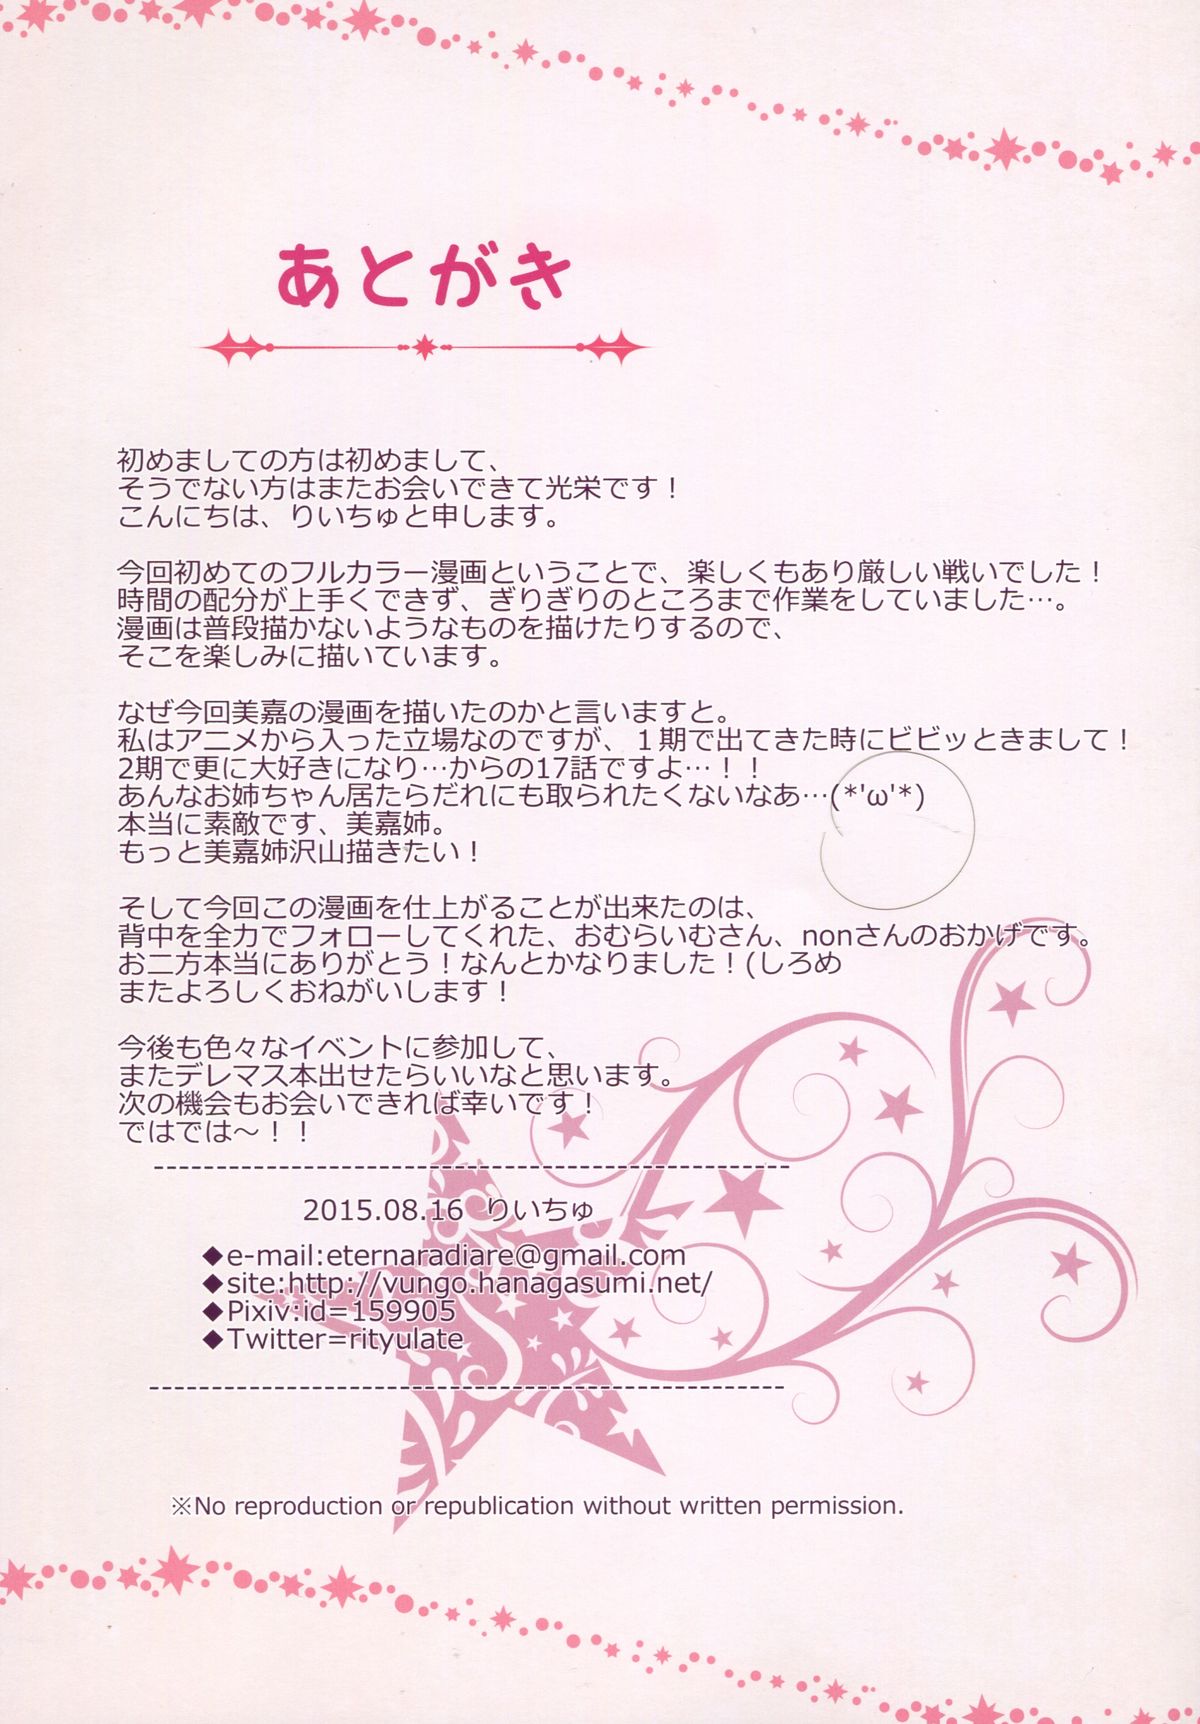 あとがき
初めましての方は初めまして、
そうでない方はまたお会いできて光栄です！
こんにちは、りいちゅと申します。
今回初めてのフルカラー漫画ということで、楽しくもあり厳しい戦いでした！
時間の配分が上手くできず、ぎりぎりのところまで作業をしていました…。
漫画は普段描かないようなものを描けたりするので、
そこを楽しみに描いています。
なぜ今回美嘉の漫画を描いたのかと言いますと。
私はアニメから入った立場なのですが、１期で出てきた時にビビッときまして！
2期で更に大好きになり…からの17話ですよ…！！
あんなお姉ちゃん居たらだれにも取られたくないなあ…(*'ω'*)
本当に素敵です、美嘉姉。
もっと美嘉姉沢山描きたい！
そして今回この漫画を仕上がることが出来たのは、
背中を全力でフォローしてくれた、おむらいむさん、nonさんのおかげです。
お二方本当にありがとう！なんとかなりました！(しろめ
またよろしくおねがいします！
今後も色々なイベントに参加して、
またデレマス本出せたらいいなと思います。
次の機会もお会いできれば幸いです！
ではでは～！！
---------------------------------------------------
2015.08.16 りいちゅ
◆e-mail:eternaradiare@gmail.com
◆site:http://vungo.hanagasumi.net/
◆Pixiv:id=159905
◆Twitter=rityulate
---------------------------------------------------
※No reproduction or republication without written permission.